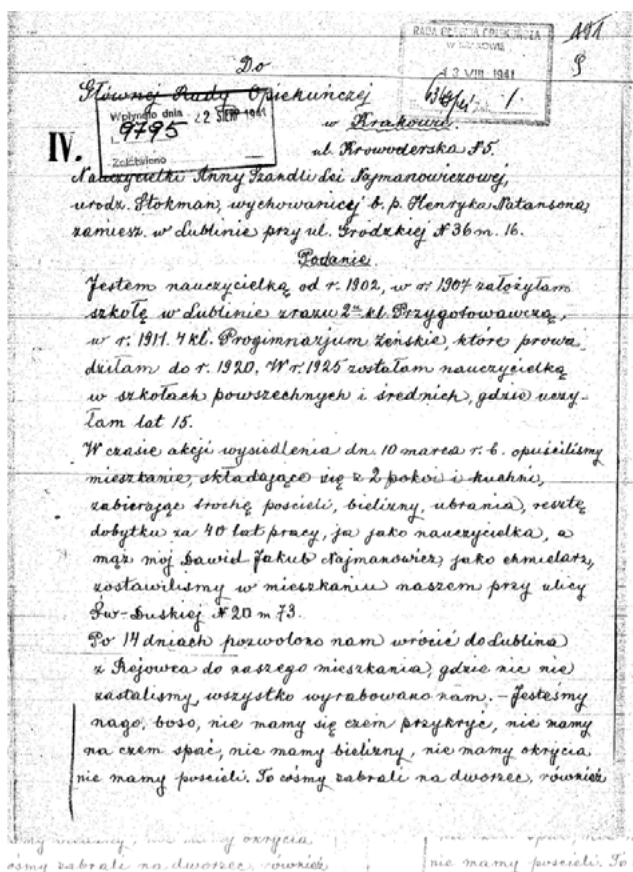 191
RADA GŁÓWNA OPIEKUŃCZA
W KRAKOWIE
13 VIII 1941
Do
Głównej Rady Opiekuńczej
Wpłynęło dnia 22 SIERP 1941
L. 9795
Załatwiono
w Krakowie.
IV.
ul. Krowoderska № 5.
Nauczycielki Anny Szandli Lei Najmanowiczowej,
urodz. Stokman, wychowanicy b. p. Henryka Natansona,
zamiesz. w Lublinie przy ul. Grodzkiej № 36 m. 16.
Podanie.
Jestem nauczycielką od r. 1902, w r. 1907 założyłam
szkołę w Lublinie zrazu 2 kl. Przygotowawczą,
w r. 1911. 4 kl. Progimnazjum żeńskie, które prowa
dziłam do r. 1920. W r. 1925 zostałam nauczycielką
w szkołach powszechnych i średnich, gdzie uczy-
łam lat 15.
W czasie akcji wysiedlenia dn. 10 marca r. b. opuściliśmy
mieszkanie, składające się z 2 pokoi i kuchni,
zabierając trochę pościeli, bielizny, ubrania, resztę
dobytku za 40 lat pracy, ja jako nauczycielka, a
mąż mój Dawid Jakub Najmanowicz, jako chmielarz,
zostawiliśmy w mieszkaniu naszem przy ulicy
Św-Duskiej № 20 m 73.
Po 14 dniach pozwolono nam wrócić do Lublina
z Rejowca do naszego mieszkania, gdzie nic nie
zastaliśmy, wszystko wyrabowano nam. - Jesteśmy
nago, boso, nie mamy się czem przykryć, nie mamy
na czem spać, nie mamy bielizny, nie mamy okrycia
nie mamy pościeli. To cośmy zabrali na dworzec, również
okrycia
ośmy zabrali na dworzec, również
nie mamy pościeli. To